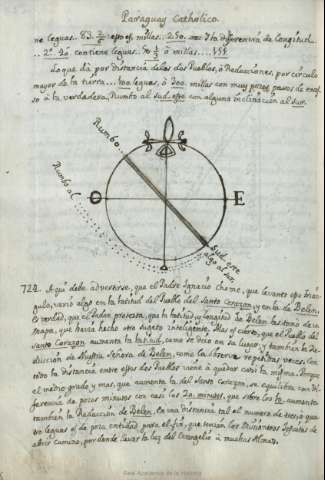 Paraguay Catholico.
ne leguas.. 83. esto es, millas.. 250. diferencia de Longitud..
.. 2°. 20'. contiene leguas.. 50 ó millas...
Lo que dà por distancia de los dos Pueblos, ò Reducciones, por circulo
mayor de la tierra... 100. leguas, ò 300. millas con muy pocos pasos de exce-
so à la verdadera. Rumbo al sud-este con alguna inclinacion al sur.
Rumbo.
Rumbo al
O
E
Sud-este
algo al sur.
722. Aqui debe advertirse, que el Padre Ignacio Chome, que levantó este trian-
gulo, varió algo en la latitud del Pueblo del Santo Corazon, y en la de Belen.
Es verdad, que el Padre protesta, que la latitud, y longitud de Belen las tomó de un
Mapa, que havia hecho otro sugeto inteligente. Mas es cierto, que el Pueblo del
Santo Corazon, aumenta la latitud, como se dice en su lugar, y tambien la Re-
duccion de Nuestra Señora de Belen, como la observe repetidas veces. Con
todo la distancia entre estos dos Pueblos viene à quedar casi la misma. Porque
el medio grado y mas, que aumenta la del Santo Corazon, se equilibra con di-
ferencia de pocos minutos con casi los 20. minutos, que sobre los aumenta
tambien la Reduccion de Belen. En una distancia tal el numero de tres, ò qua-
tro leguas es de poca entidad para el fin, que tenian los Misioneros Jesuitas de
abrir camino, por donde llevar la luz del Evangelio à muchas Almas.
Real Academia de la Historia